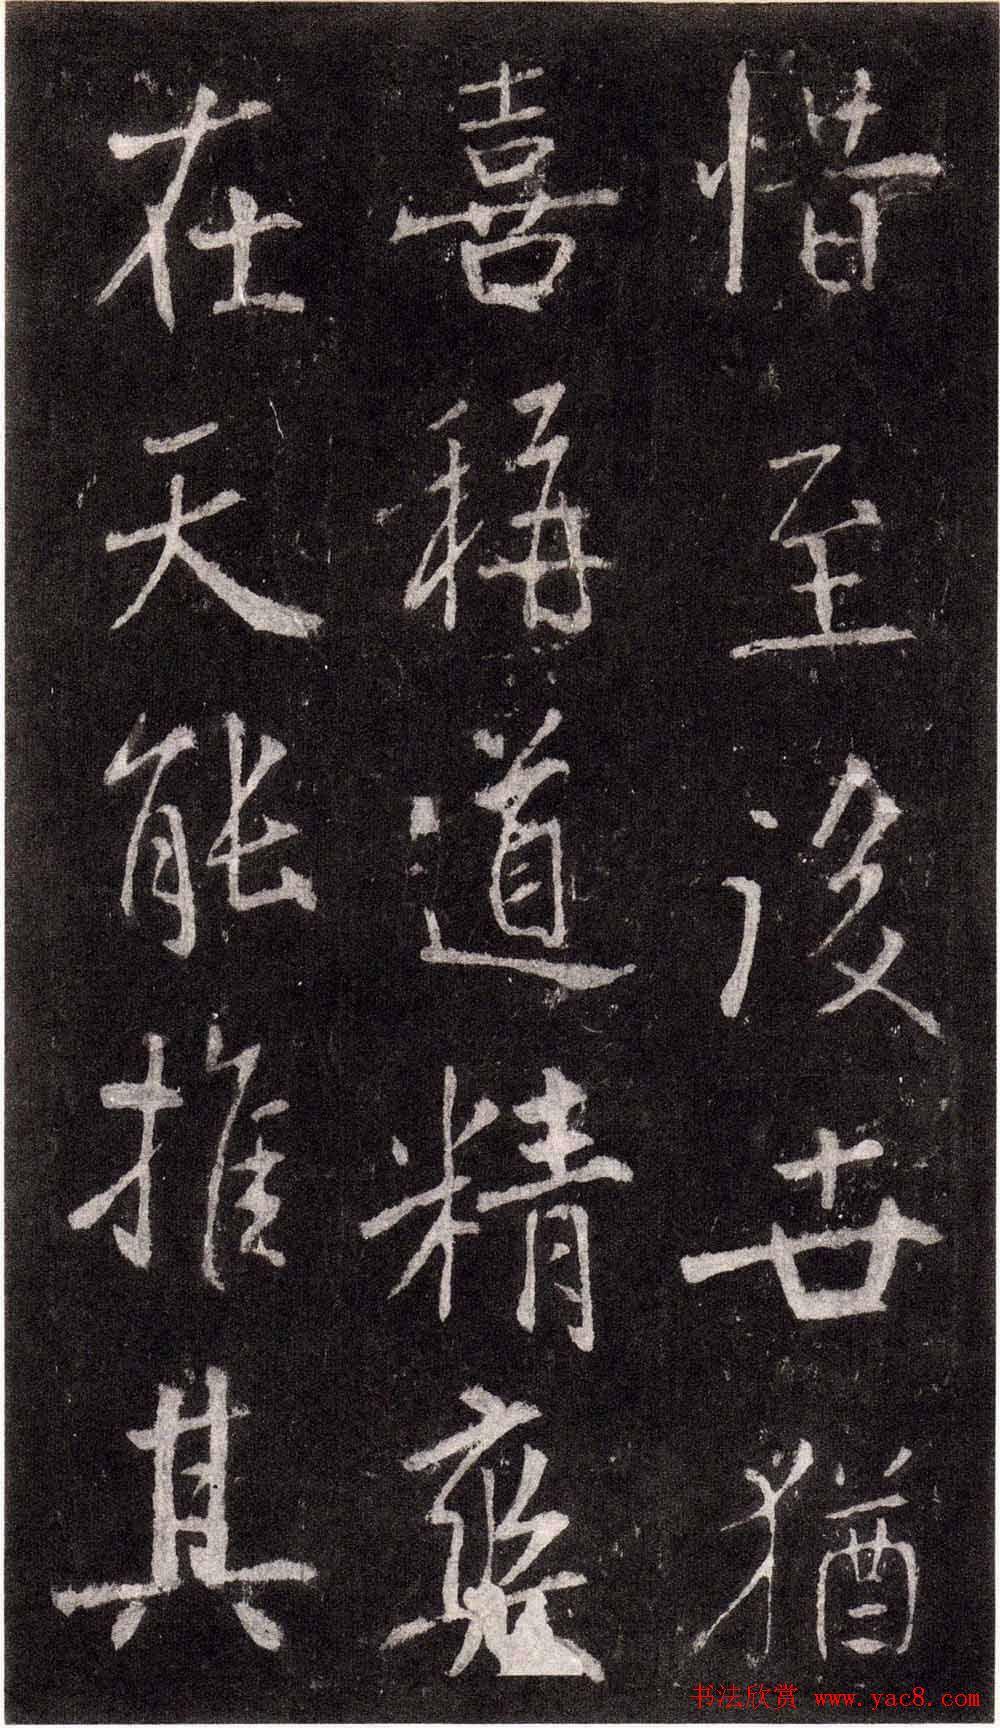 惜至後世猶
喜稱道精爽
在天能推其
书法欣赏 www.yac8.com